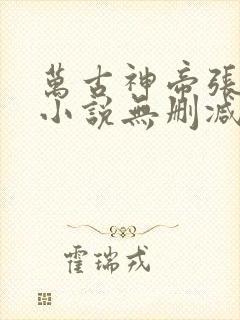 萬古神帝張
小說無刪減
霍瑞戎